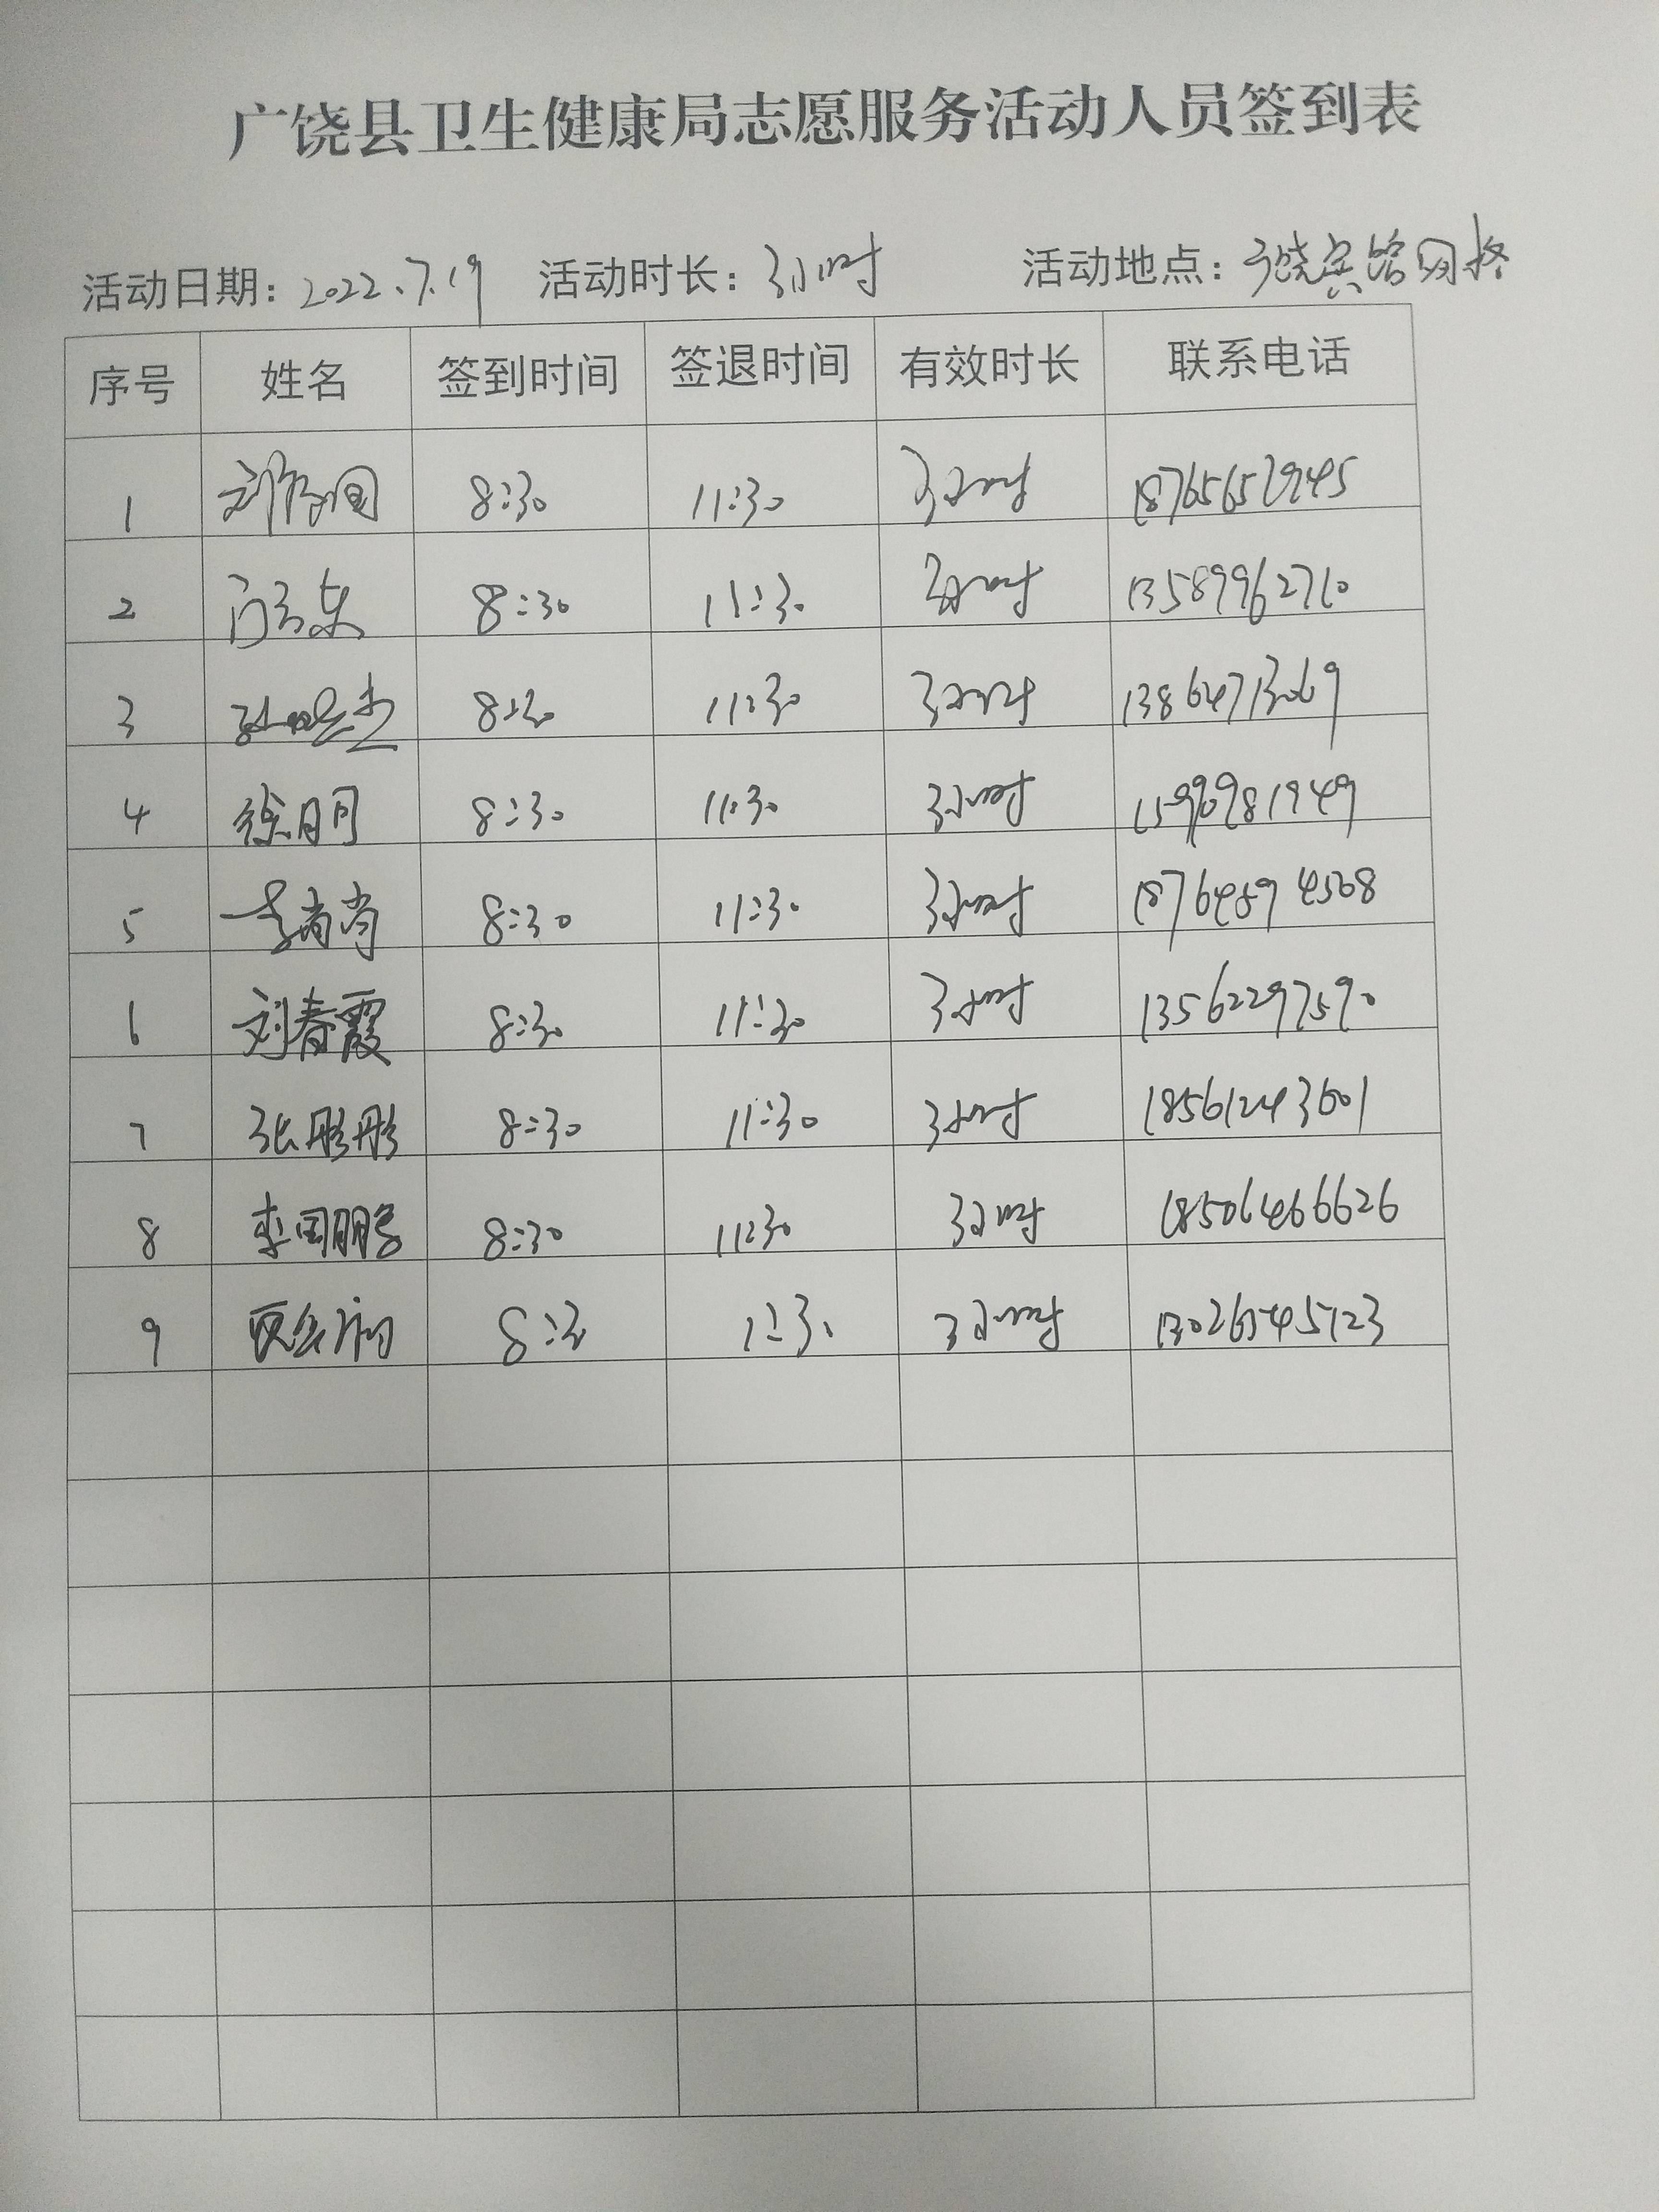 广饶县卫生健康局志愿服务活动人员签到表
活动日期：2022.7.19 活动时长：3小时 活动地点：广饶宾馆网格
序号 姓名 签到时间 签退时间 有效时长 联系电话
1 8:30 11:30 3小时
2 8:30 11:30 3小时 13589962710
3 8:30 11:30 3小时 13864713069
4 徐明月 8:30 11:30 3小时 15909981949
5 李尚尚 8:30 11:30 3小时 18764594508
6 刘春霞 8:30 11:30 3小时 13562297590
7 张彤彤 8:30 11:30 3小时 18561243601
8 李国鹏 8:30 11:30 3小时 18506466626
9 8:30 11:30 3小时